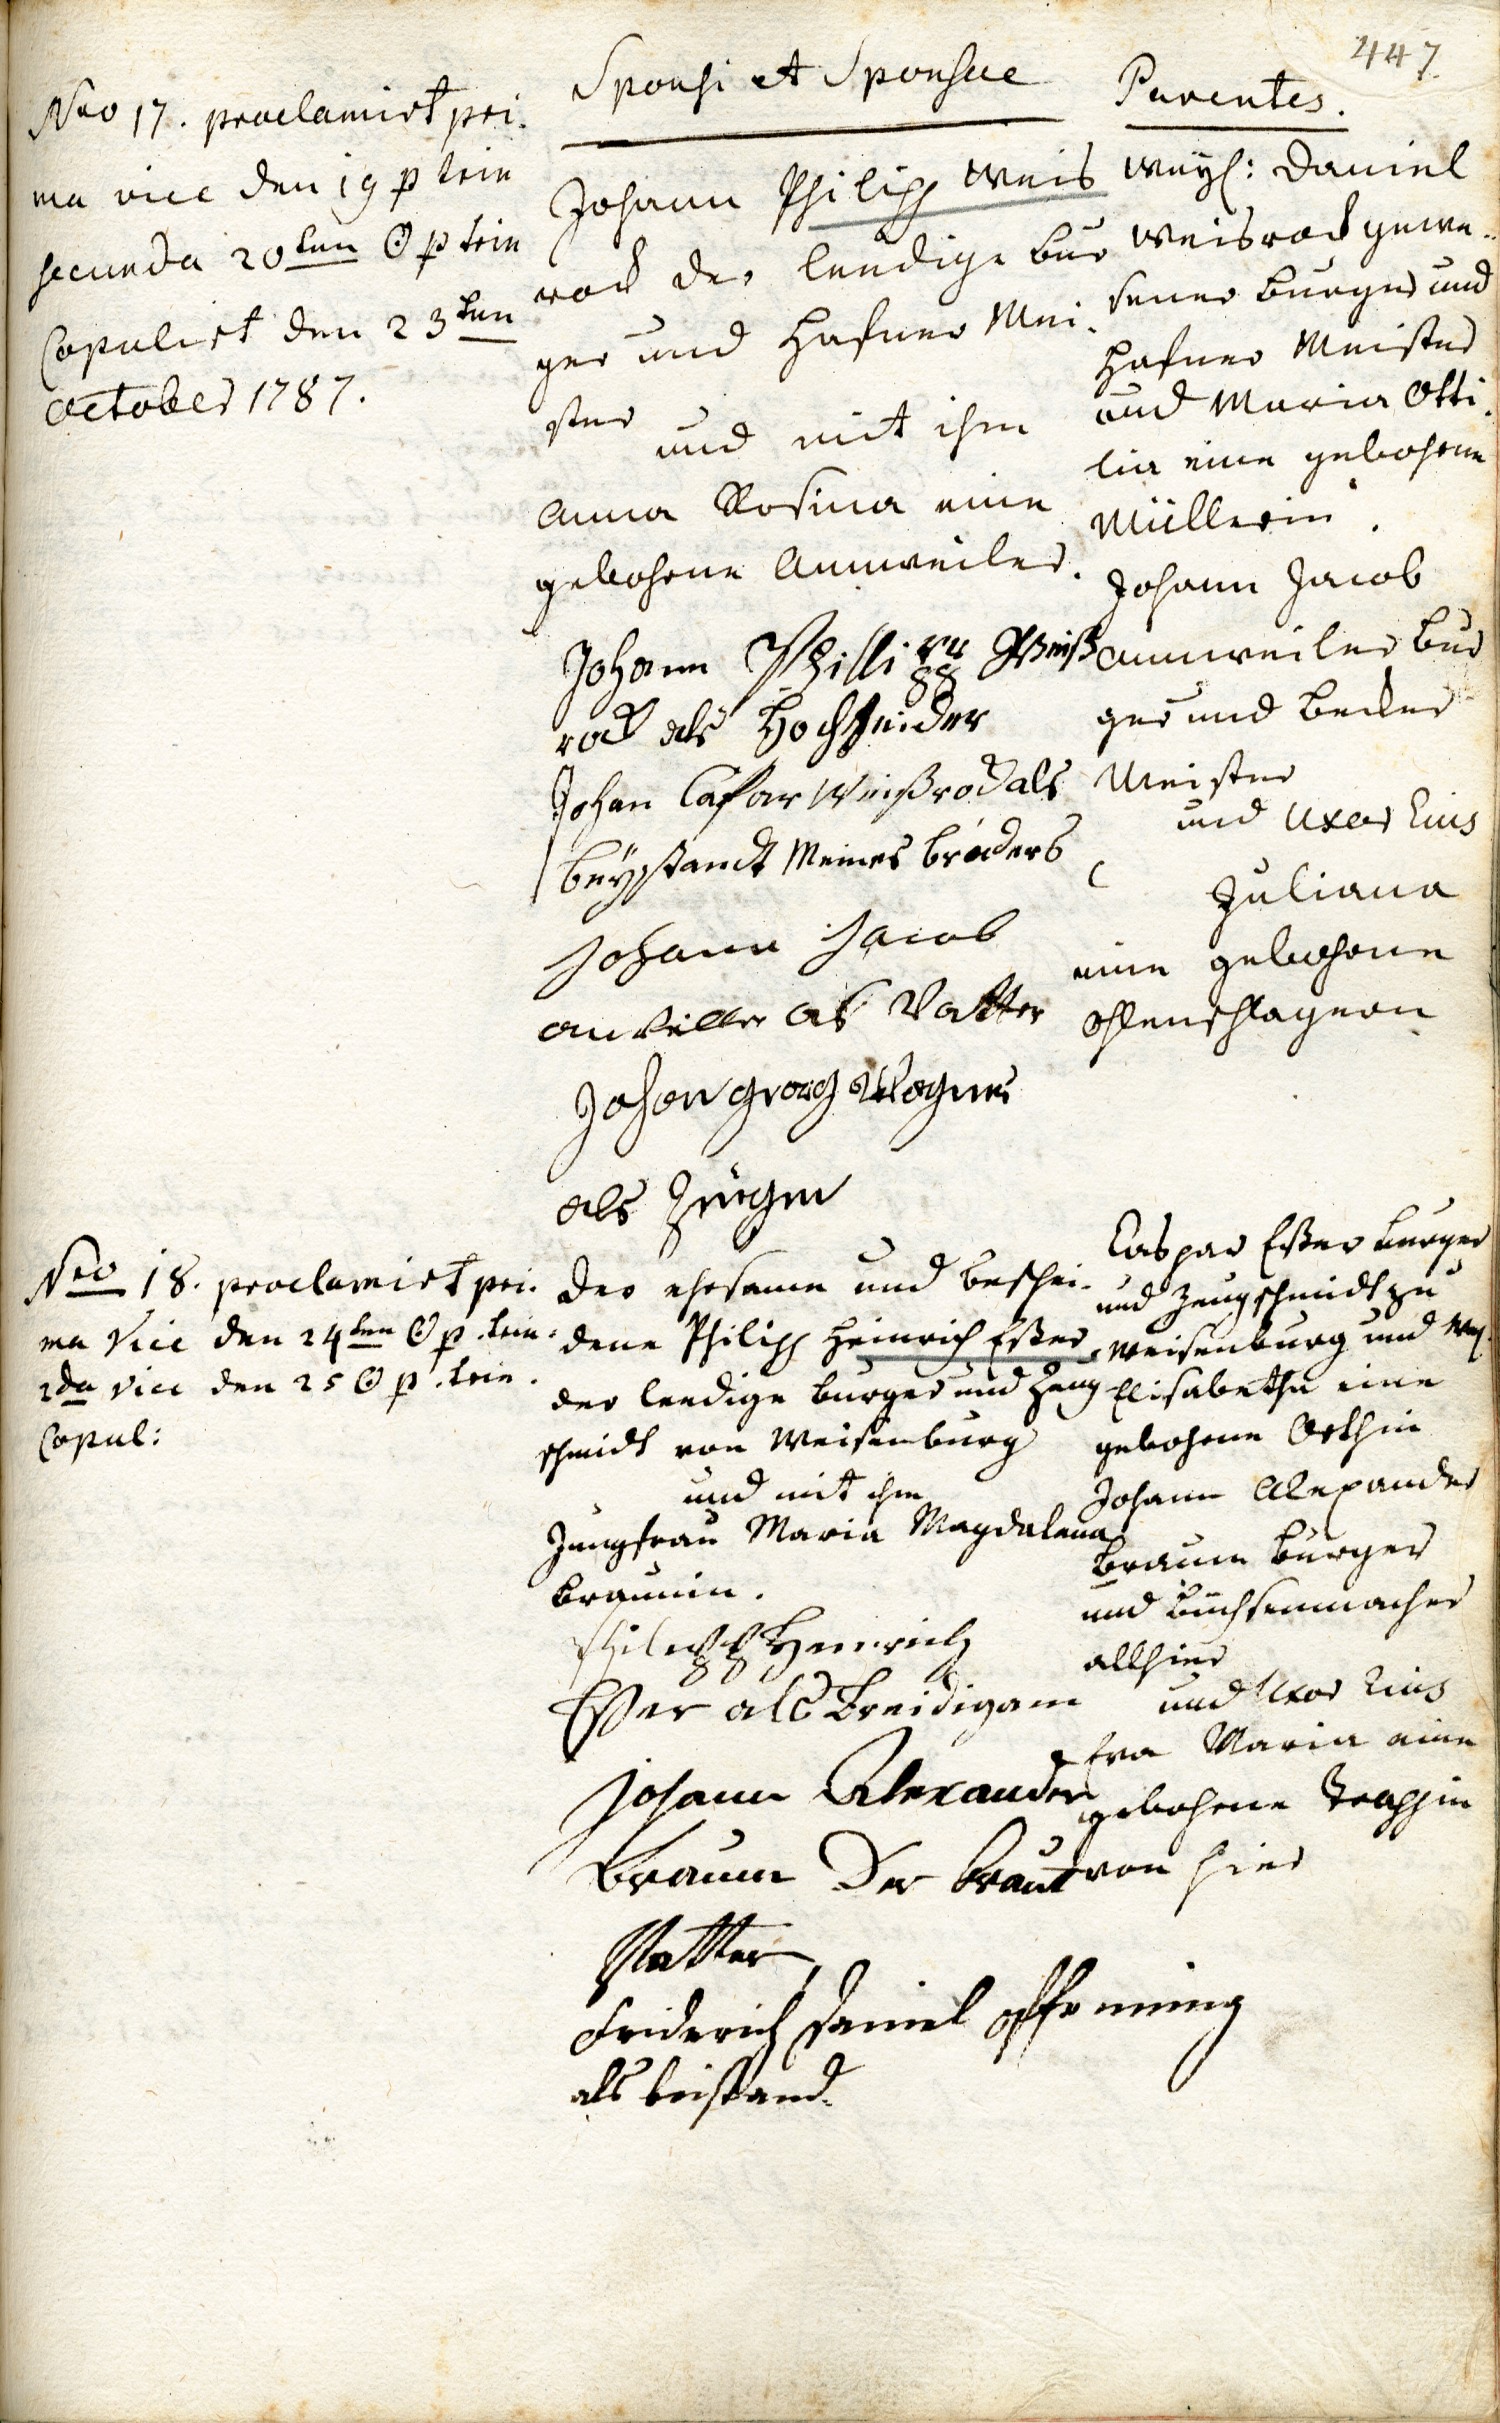 447.
Sponsi et Sponsae
Parentes.
Nro 17. proclamirt pri-
ma vice den 19 p trin
secunda 20ten ☉ p trin
Copulirt den 23ten
october 1787.
Johann Philipp Weis
rock der leedige bur
ger und Hafner Mei-
ster
und mit ihm
Anna Rosina eine
gebohrne Annweiler.
Johann Phillipp Weiß
rock als Hochzeider
Johan Casbar Weißrock als
beÿstandt Meines bruders
Johann Jacob
anweiller als Vatter
Johan georg Wagner
als Zeugen
Weyl: Daniel
Weisrock gewe-
sener burger und
Hafner Meister
und Maria Otti-
lia eine gebohrne
Müllerin.
Johann Jacob
Annweiler bur
ger und becker
Meister
und Uxor Eius
Juliana
eine gebohrne
Ohlenschlagern
Nro 18. proclamirt pri-
ma vice den 24ten ☉ p. trin.
2da vice den 25 ☉ p. trin.
Copul:
der ehrsame und beschei-
dene Philipp Heinrich Esser
der leedige burger und Zeug
schmidt von Weisenburg
und mit ihm
Jungfrau Maria Magdalena
braunin.
Philipp Henrich
Esser als breidigam
Johann Alexander
Braun Der braut
Vatter
Friderich Daniel
als beistand.
Caspar Esser burger
und Zeugschmidt zu
Weisenburg und
Elisabetha eine
gebohrne Orthin
Johann Alexander
braun burger
und büchsenmacher
allhier
und Uxor Eius
Eva Maria eine
gebohrne Trappin
von hier